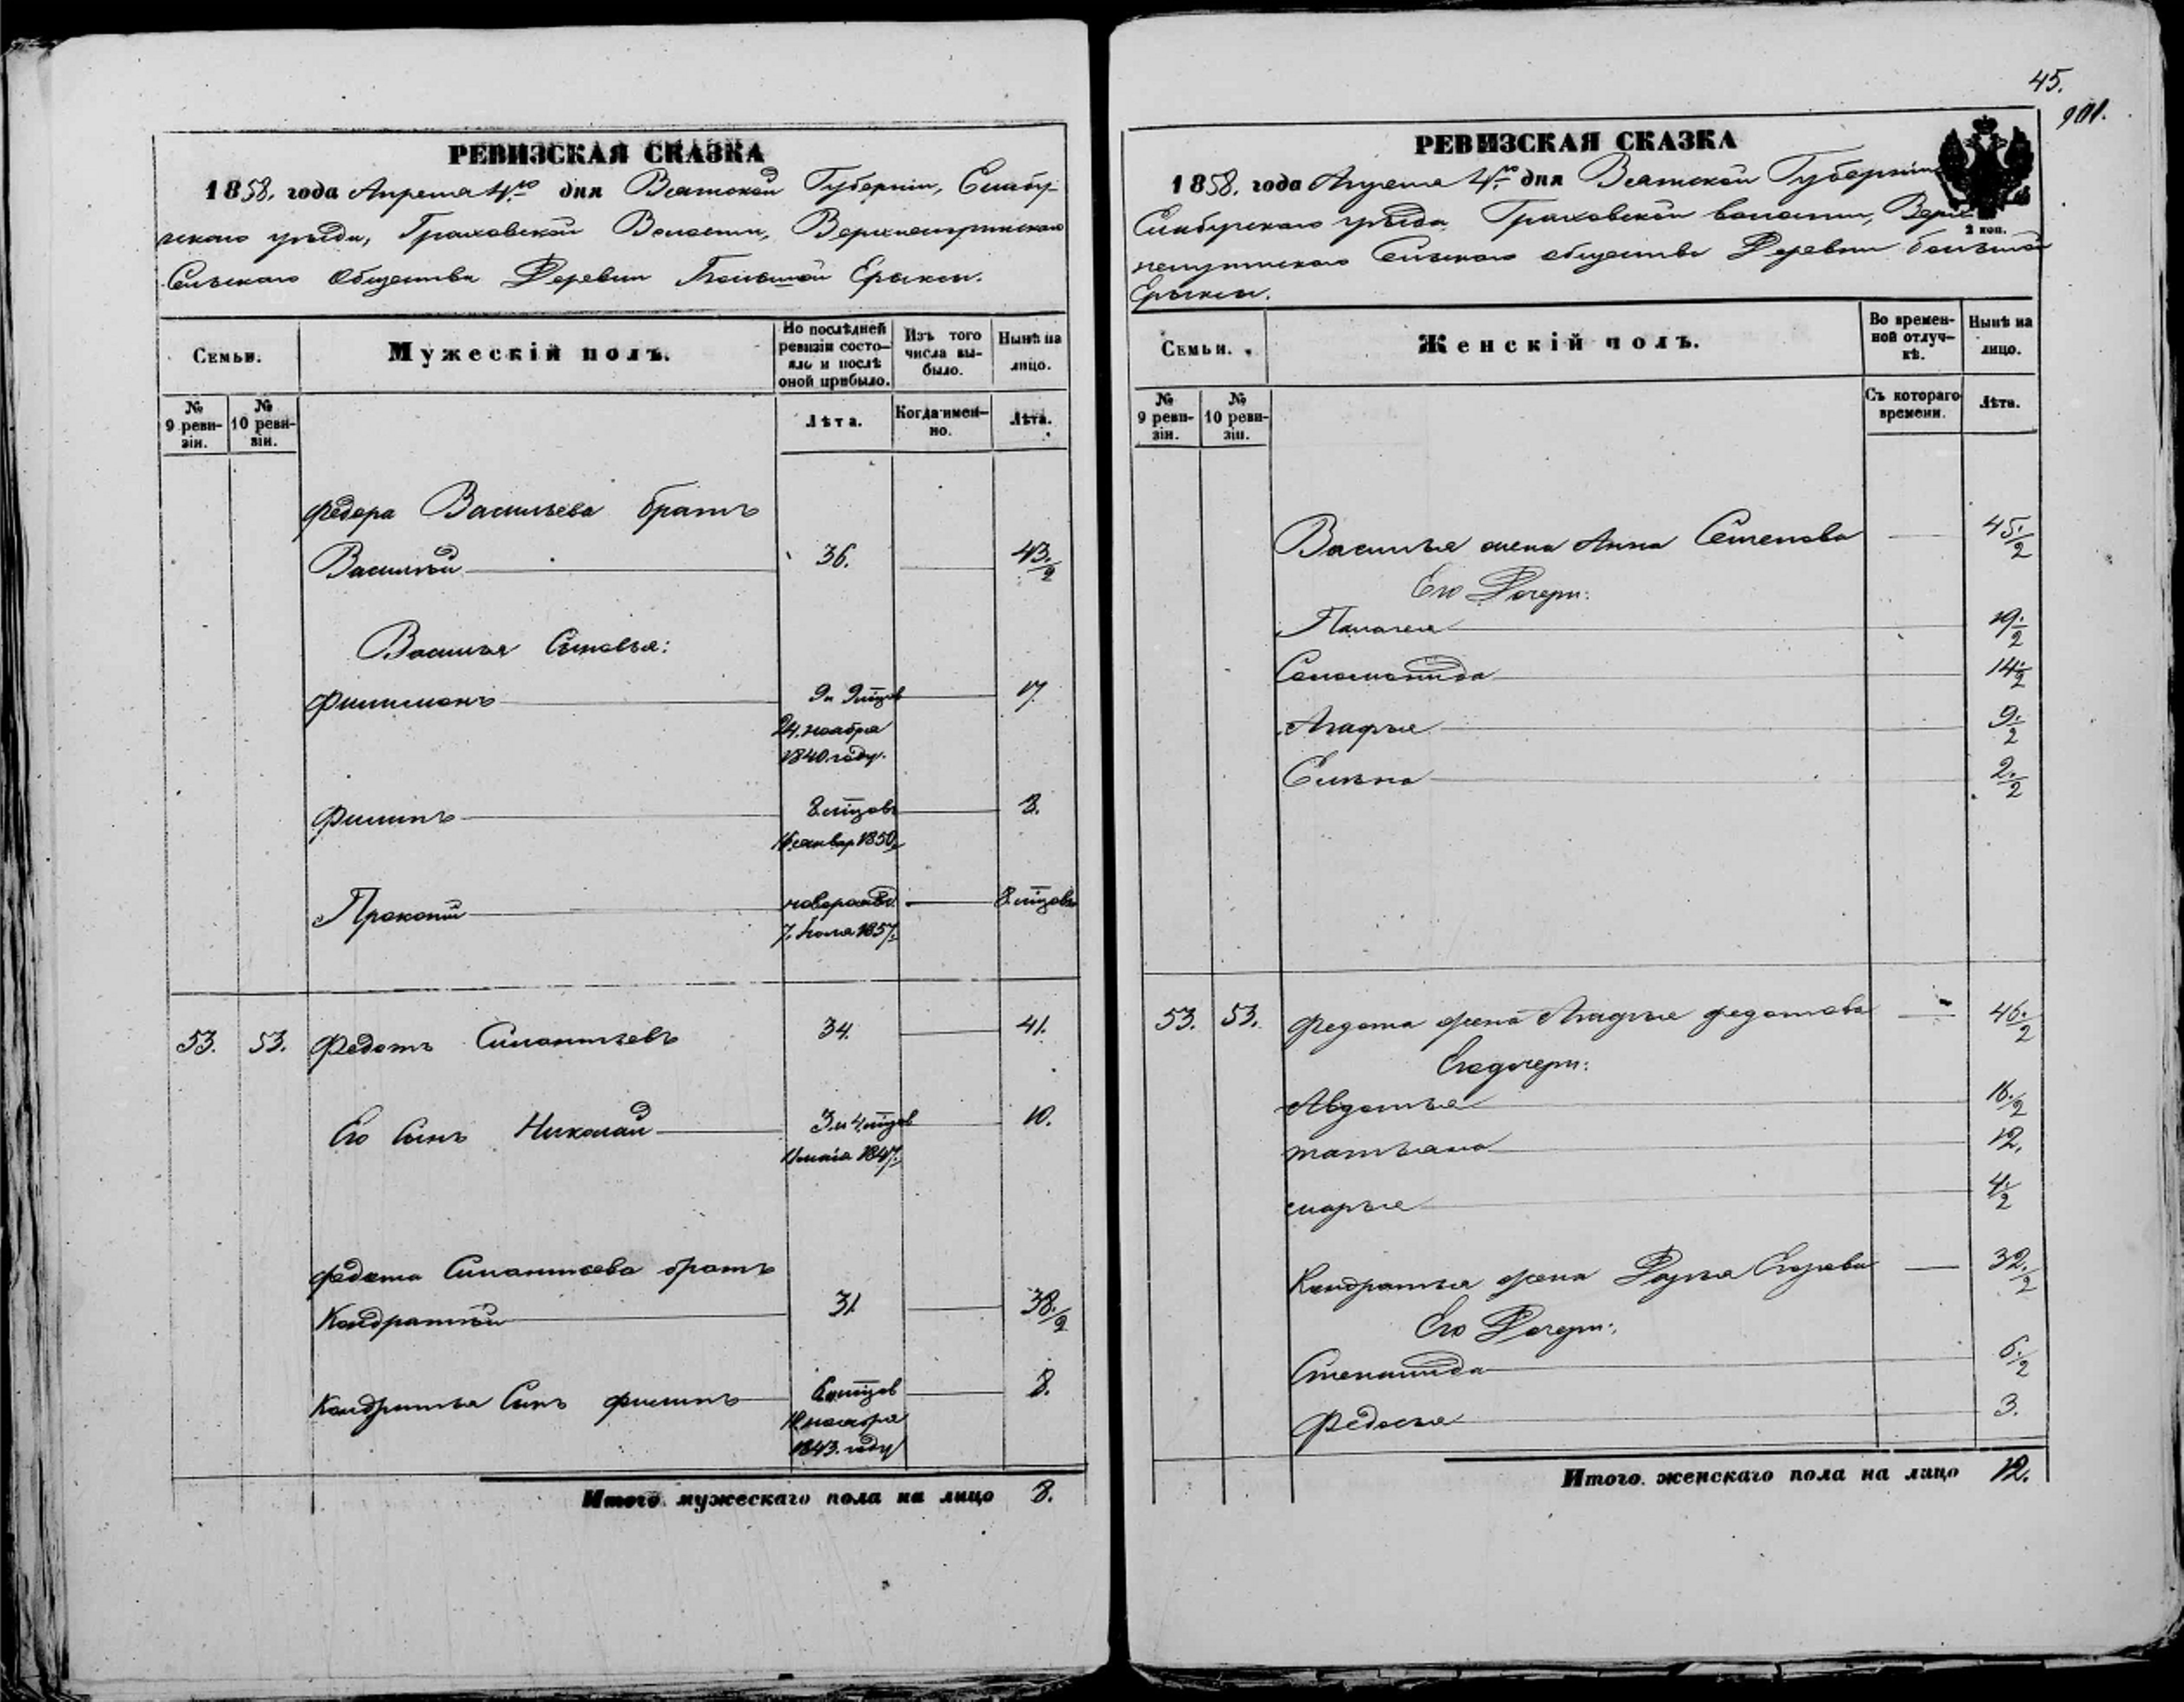 РЕВИЗСКАЯ СКАЗКА
1858. года Апреля 4го дня Вятской Губерніи, Елабу-
жскаго уѣзда, Граховской Волости,
Сельскаго Общества Деревни Большой Ерыксы.
Семьи.
Мужескій полъ.
По послѣдней
ревизіи состо-
яло и послѣ
оной прибыло.
Изъ того
числа вы-
было.
Нынѣ на
лицо.
№
9 реви-
зіи.
№
10 реви-
зіи.
Лѣта.
Когда имен-
но.
Лѣта.
Федора Васильева братъ
Василий 36. 43.½
Василья Сыновья:
Филимонъ 9 и 9 мцов 17
24. ноября
1840. году.
Филипъ 8 мцовъ 8.
16 январ 1850
Прокопий новорожд. 8 мцовъ
7. Іюля 1857.
53. 53. Федотъ Силантьевъ 34. 41.
Его Сынъ Николай 3. и 4 мцов 10.
11 мая 1847.
Федота Силантьева братъ
Кондратий 31. 38.½
Кондратья Сынъ филипъ 6 мцов 8.
1843. году
Итого мужескаго пола на лицо 8.
45.
901.
РЕВИЗСКАЯ СКАЗКА
1858. года Апреля 4го дня Вятской Губерніи
Елабужскаго уѣзда Граховской волости,
Сельскаго общества Деревни большой
Ерыксы.
2 коп.
Семьи.
Женскій полъ.
Во времен-
ной отлуч-
кѣ.
Нынѣ на
лицо.
№
9 реви-
зіи.
№
10 реви-
зіи.
Съ котораго
времени.
Лѣта.
Василья жена Анна Семенова 45.½
Его Дочери:
Палагея 19.½
Соломонида 14½
Агафья 9.½
Елена 2.½
53. 53. Федота жена Агафья федотова 46.½
Его дочери:
Авдотья 16.½
татьяна 12.
марья 4½
Кондратья жена Дарья Егорова 32.½
Его Дочери:
Степанида 6.½
Федосья 3.
Итого женскаго пола на лицо 12.